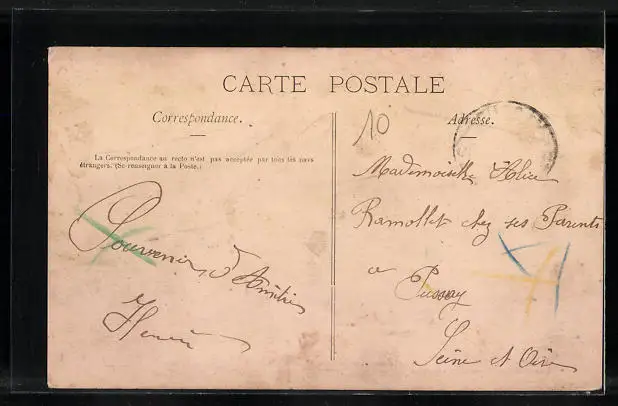 CARTE POSTALE
Correspondance.
Adresse.
10
La Correspondance au recto n'est pas acceptée par tous les pays
étrangers. (Se renseigner à la Poste.)
Mademoiselle Alice
Ramollet chez ses Parents
a Pussay
Seine et Oise
Souvenir d'Amitié
Henri